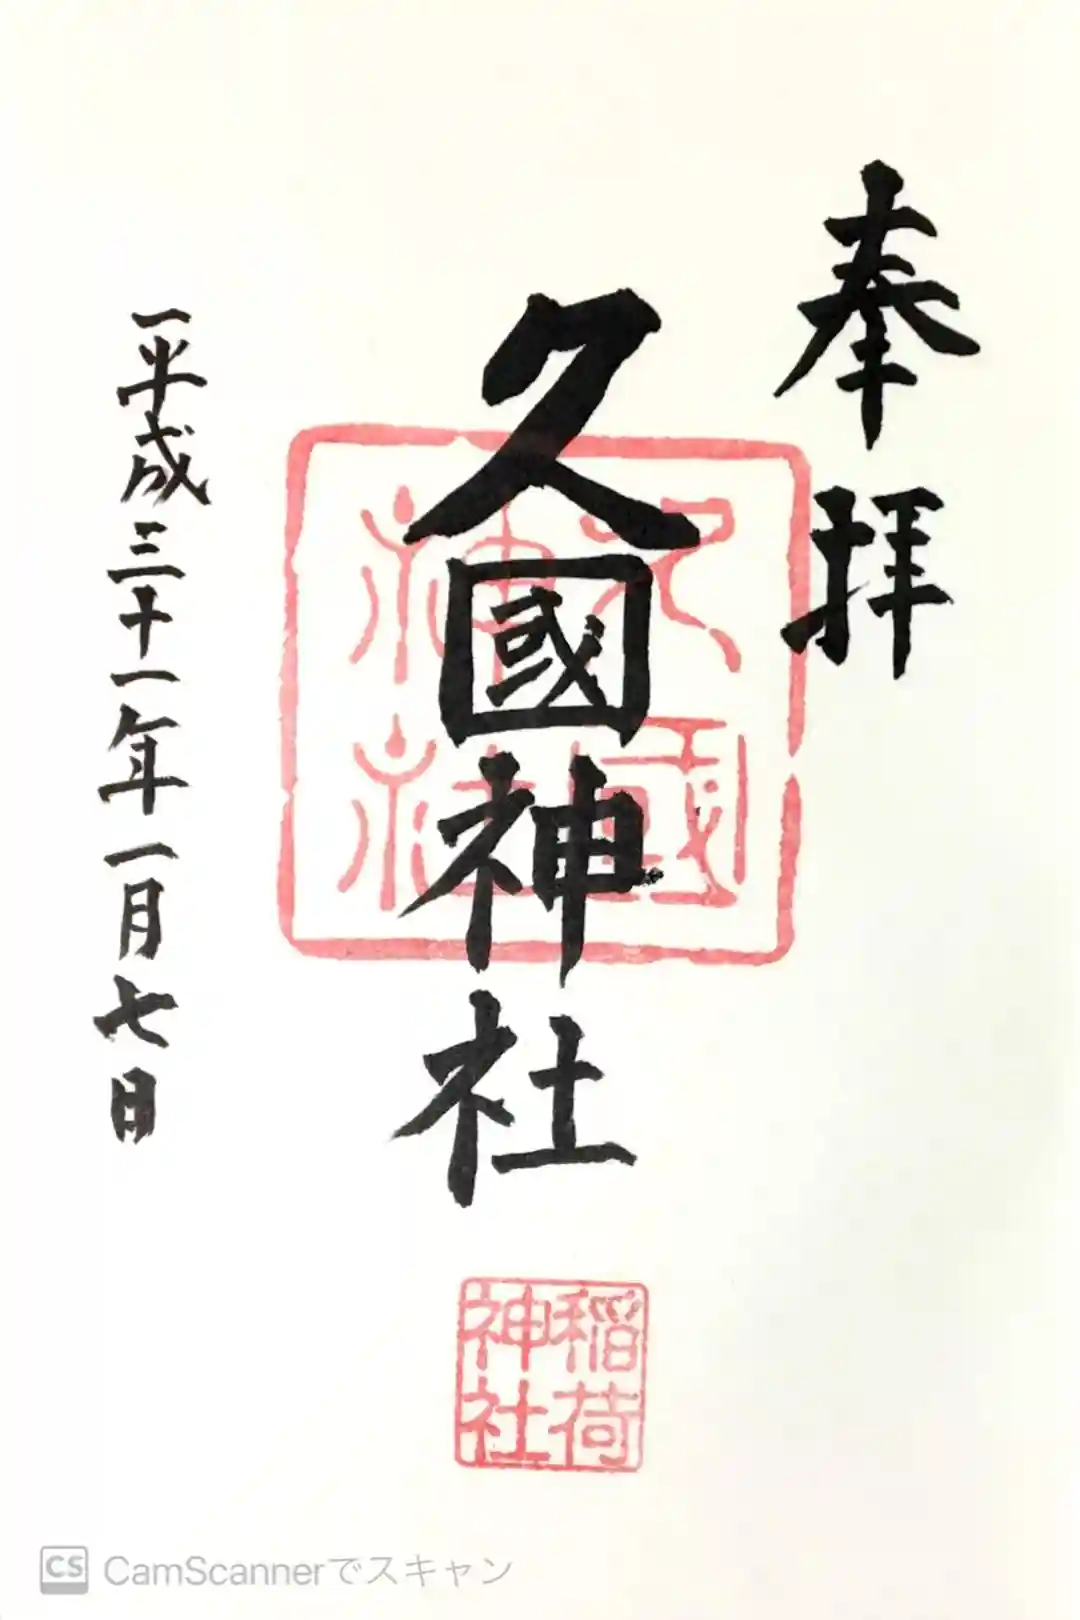 奉拝
久國神社
平成三十一年一月七日
久國
神社
稲荷
神社
CS CamScannerでスキャン